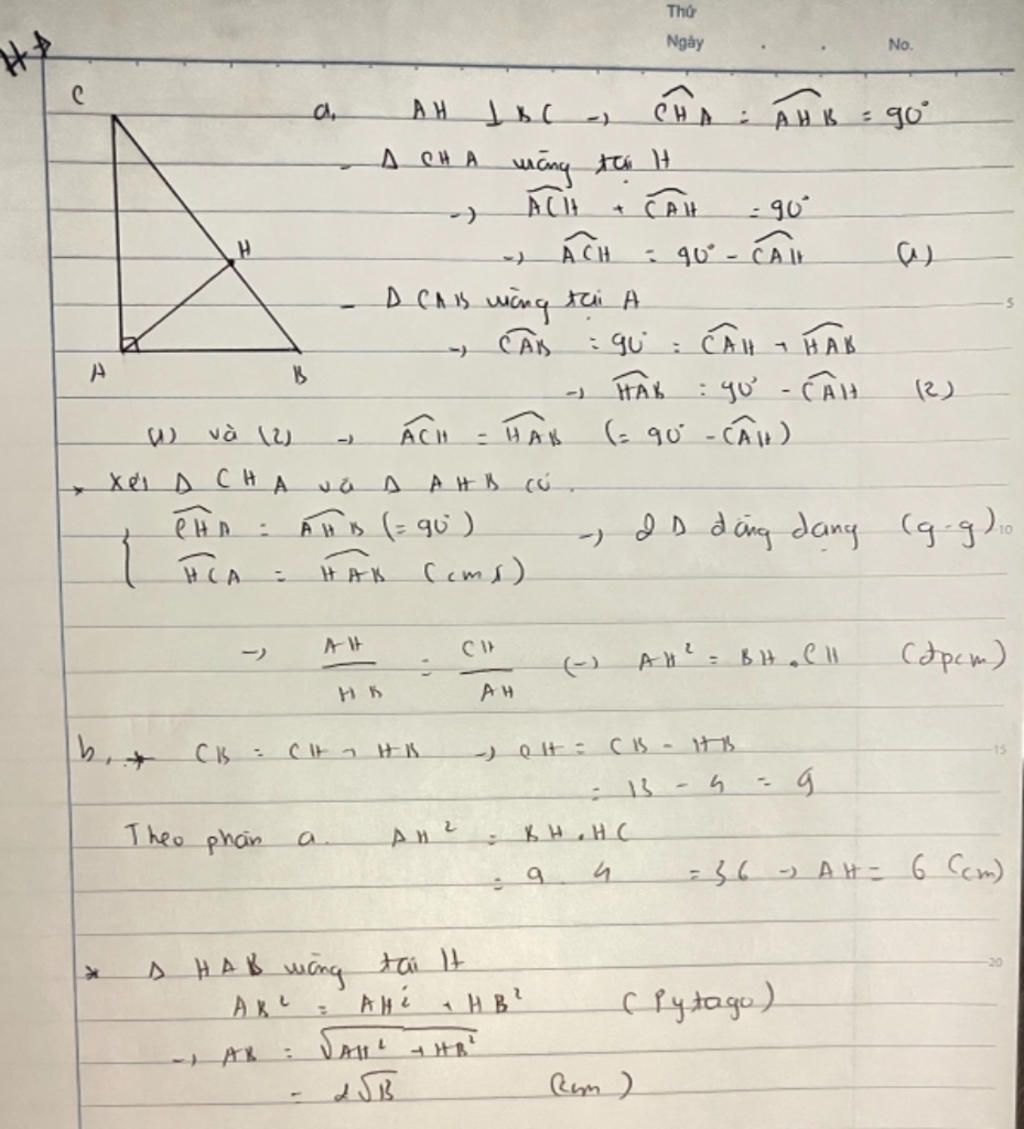 Thứ
Ngày . . No.
C
a. AH ⊥ BC → ĈHA = ÂHB = 90°
- Δ CHA vuông tại H
→ ÂCH + ĈAH = 90°
H
→ ÂCH = 90° - ĈAH (1)
- Δ CAB vuông tại A
5
→ ĈAB = 90° = ĈAH + ĤAB
A B
→ ĤAB = 90° - ĈAH (2)
(1) và (2) → ÂCH = ĤAB (= 90° - ĈAH)
* Xét Δ CHA và Δ AHB có.
{ ĈHA = ÂHB (= 90°) → 2 Δ đồng dạng (g-g)
10
ĤCA = ĤAB (cmt)
→ AH/HB = CH/AH (→) AH² = BH.CH (đpcm)
b, * CB = CH + HB → CH = CB - HB
15
= 13 - 4 = 9
Theo phần a. AH² = BH.HC
= 9 . 4 = 36 → AH = 6 (cm)
* Δ HAB vuông tại H
20
AB² = AH² + HB² (Pytago)
→ AB = √(AH² + HB²)
= 2√13 (cm)